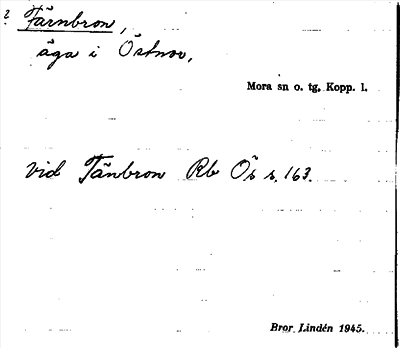 ? Färnbron,
äga i Östnor,
Mora sn o. tg. Kopp. l.
vid Tänbron Rb Ös s. 163.
Bror Lindén 1945.